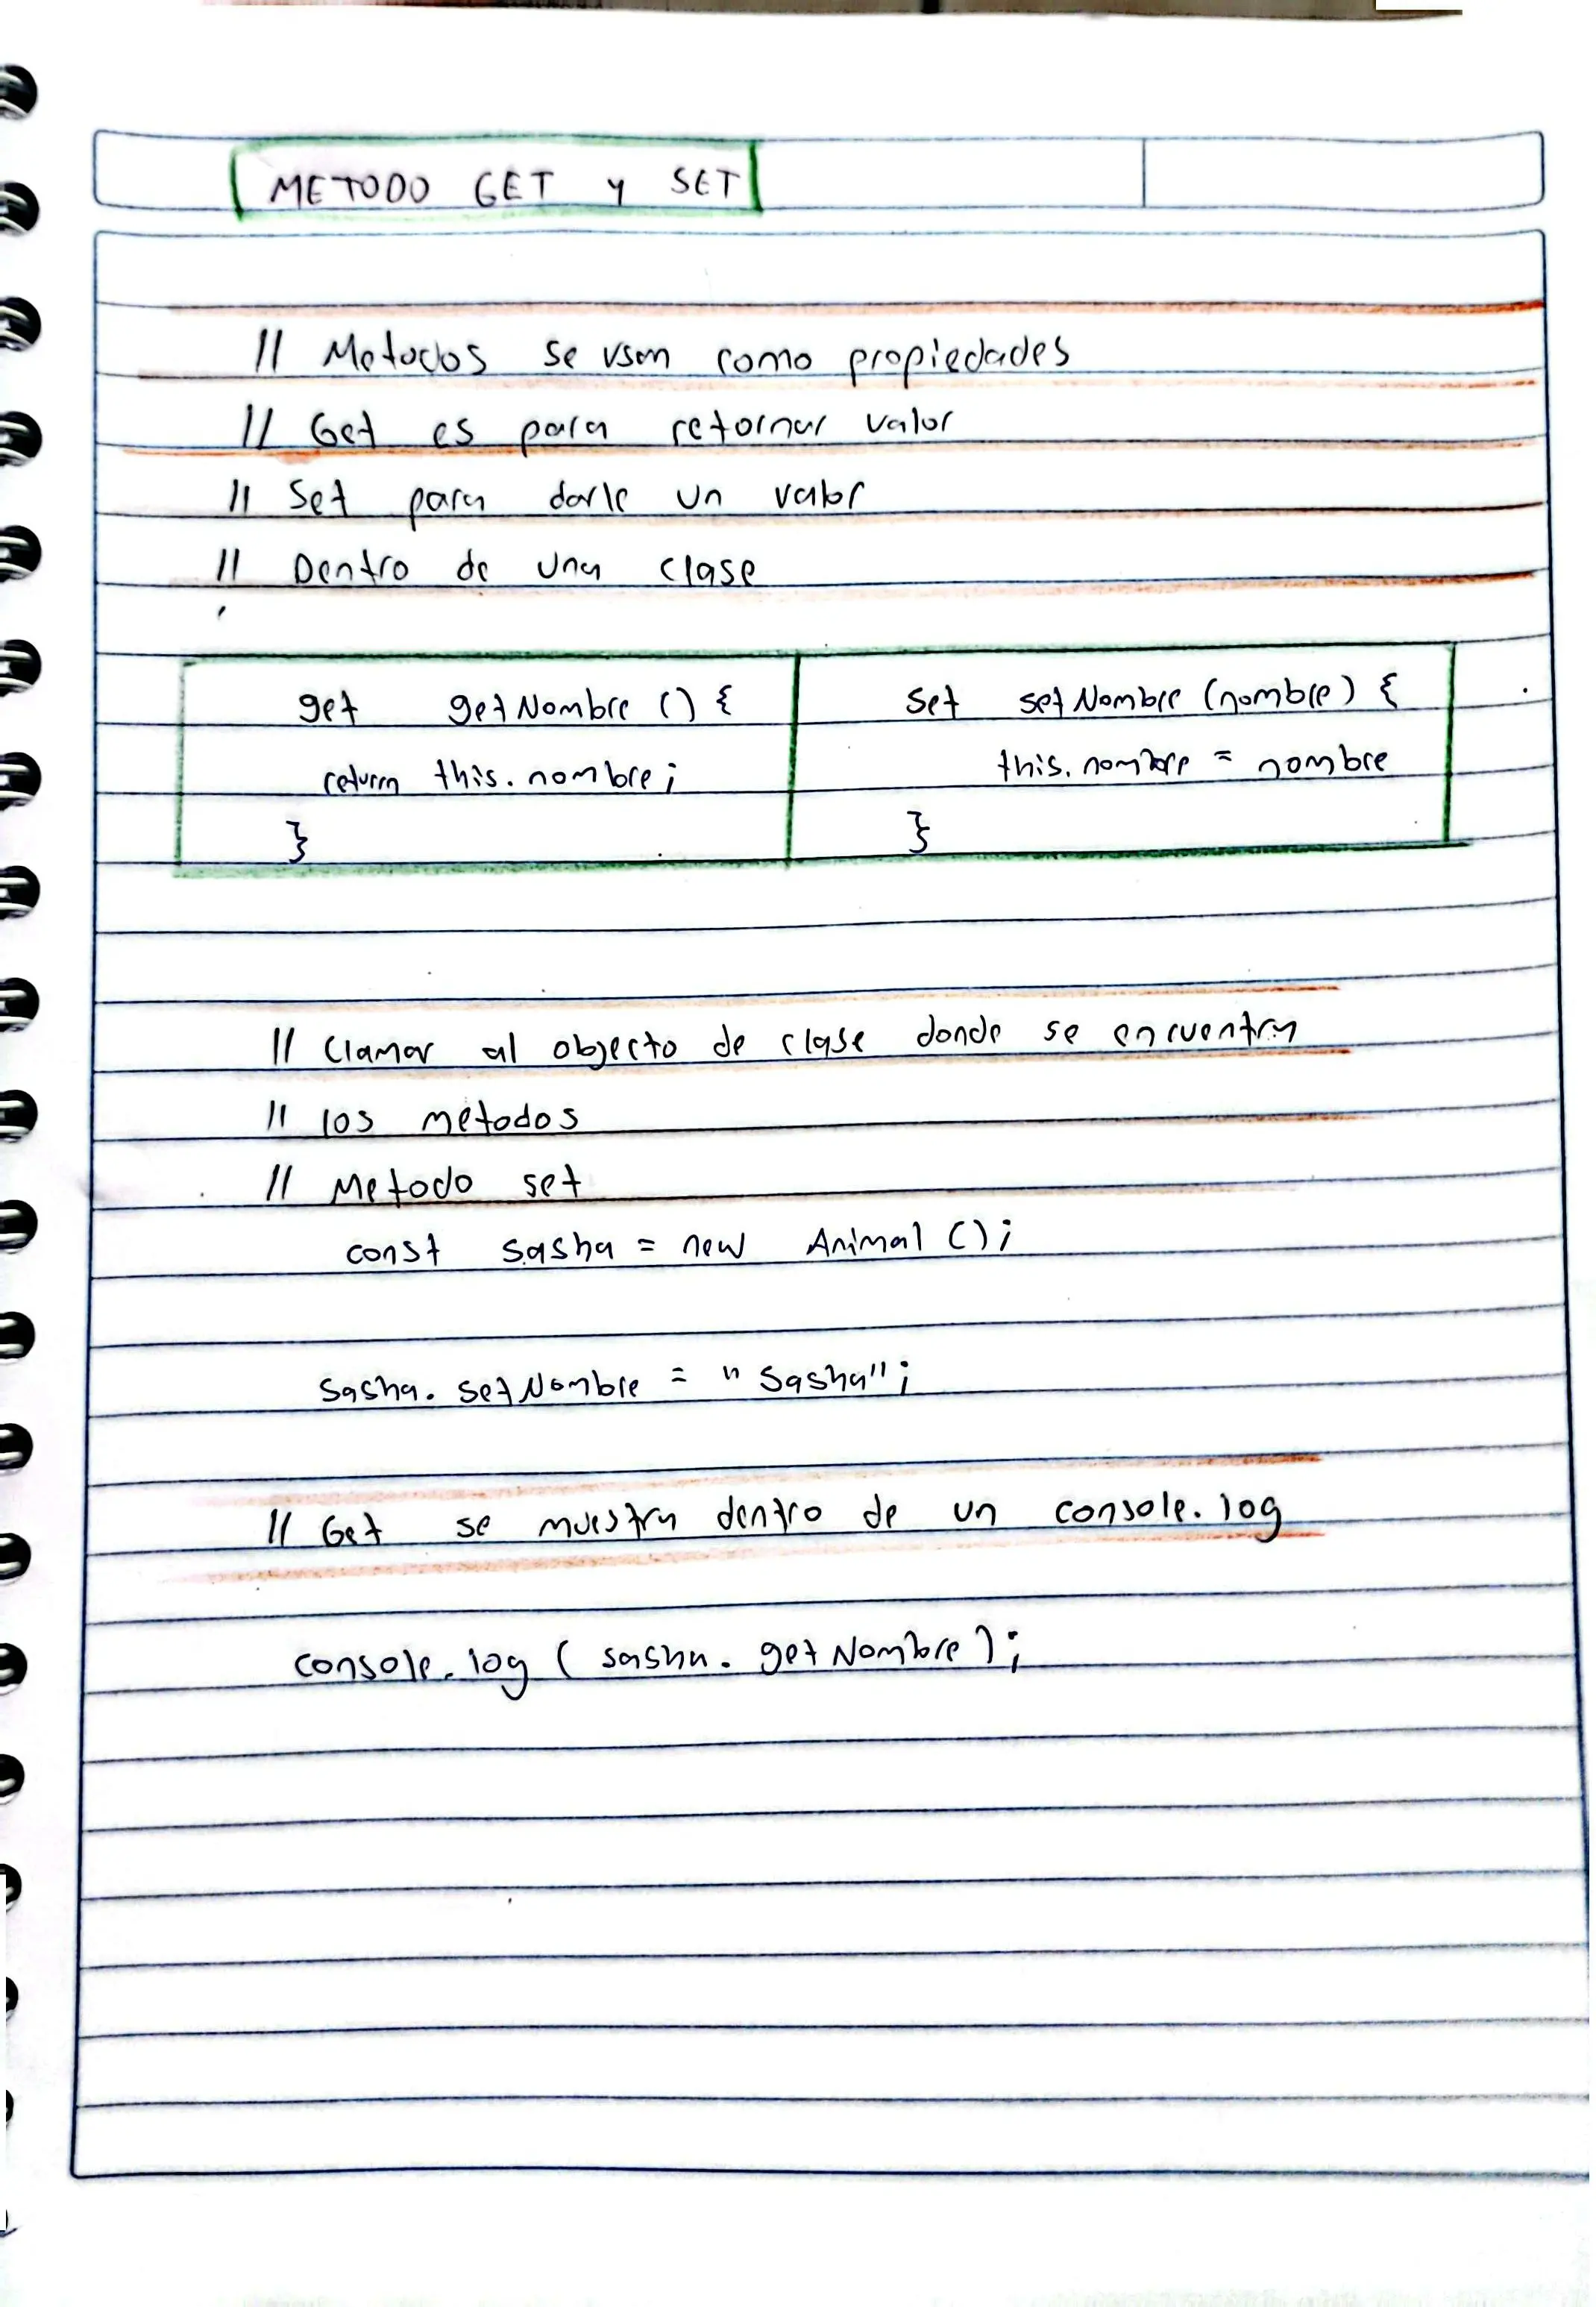 METODO GET y SET
// Metodos se usan como propiedades
// Get es para retornar valor
// Set para darle un valor
// Dentro de una clase
get getNombre () {
return this.nombre;
}
set setNombre (nombre) {
this.nombre = nombre
}
// Clamar al objecto de clase donde se encuentra
// los metodos
// Metodo set
const sasha = new Animal ();
sasha. setNombre = "Sasha";
// Get se muestra dentro de un console.log
console.log ( sasha. getNombre );